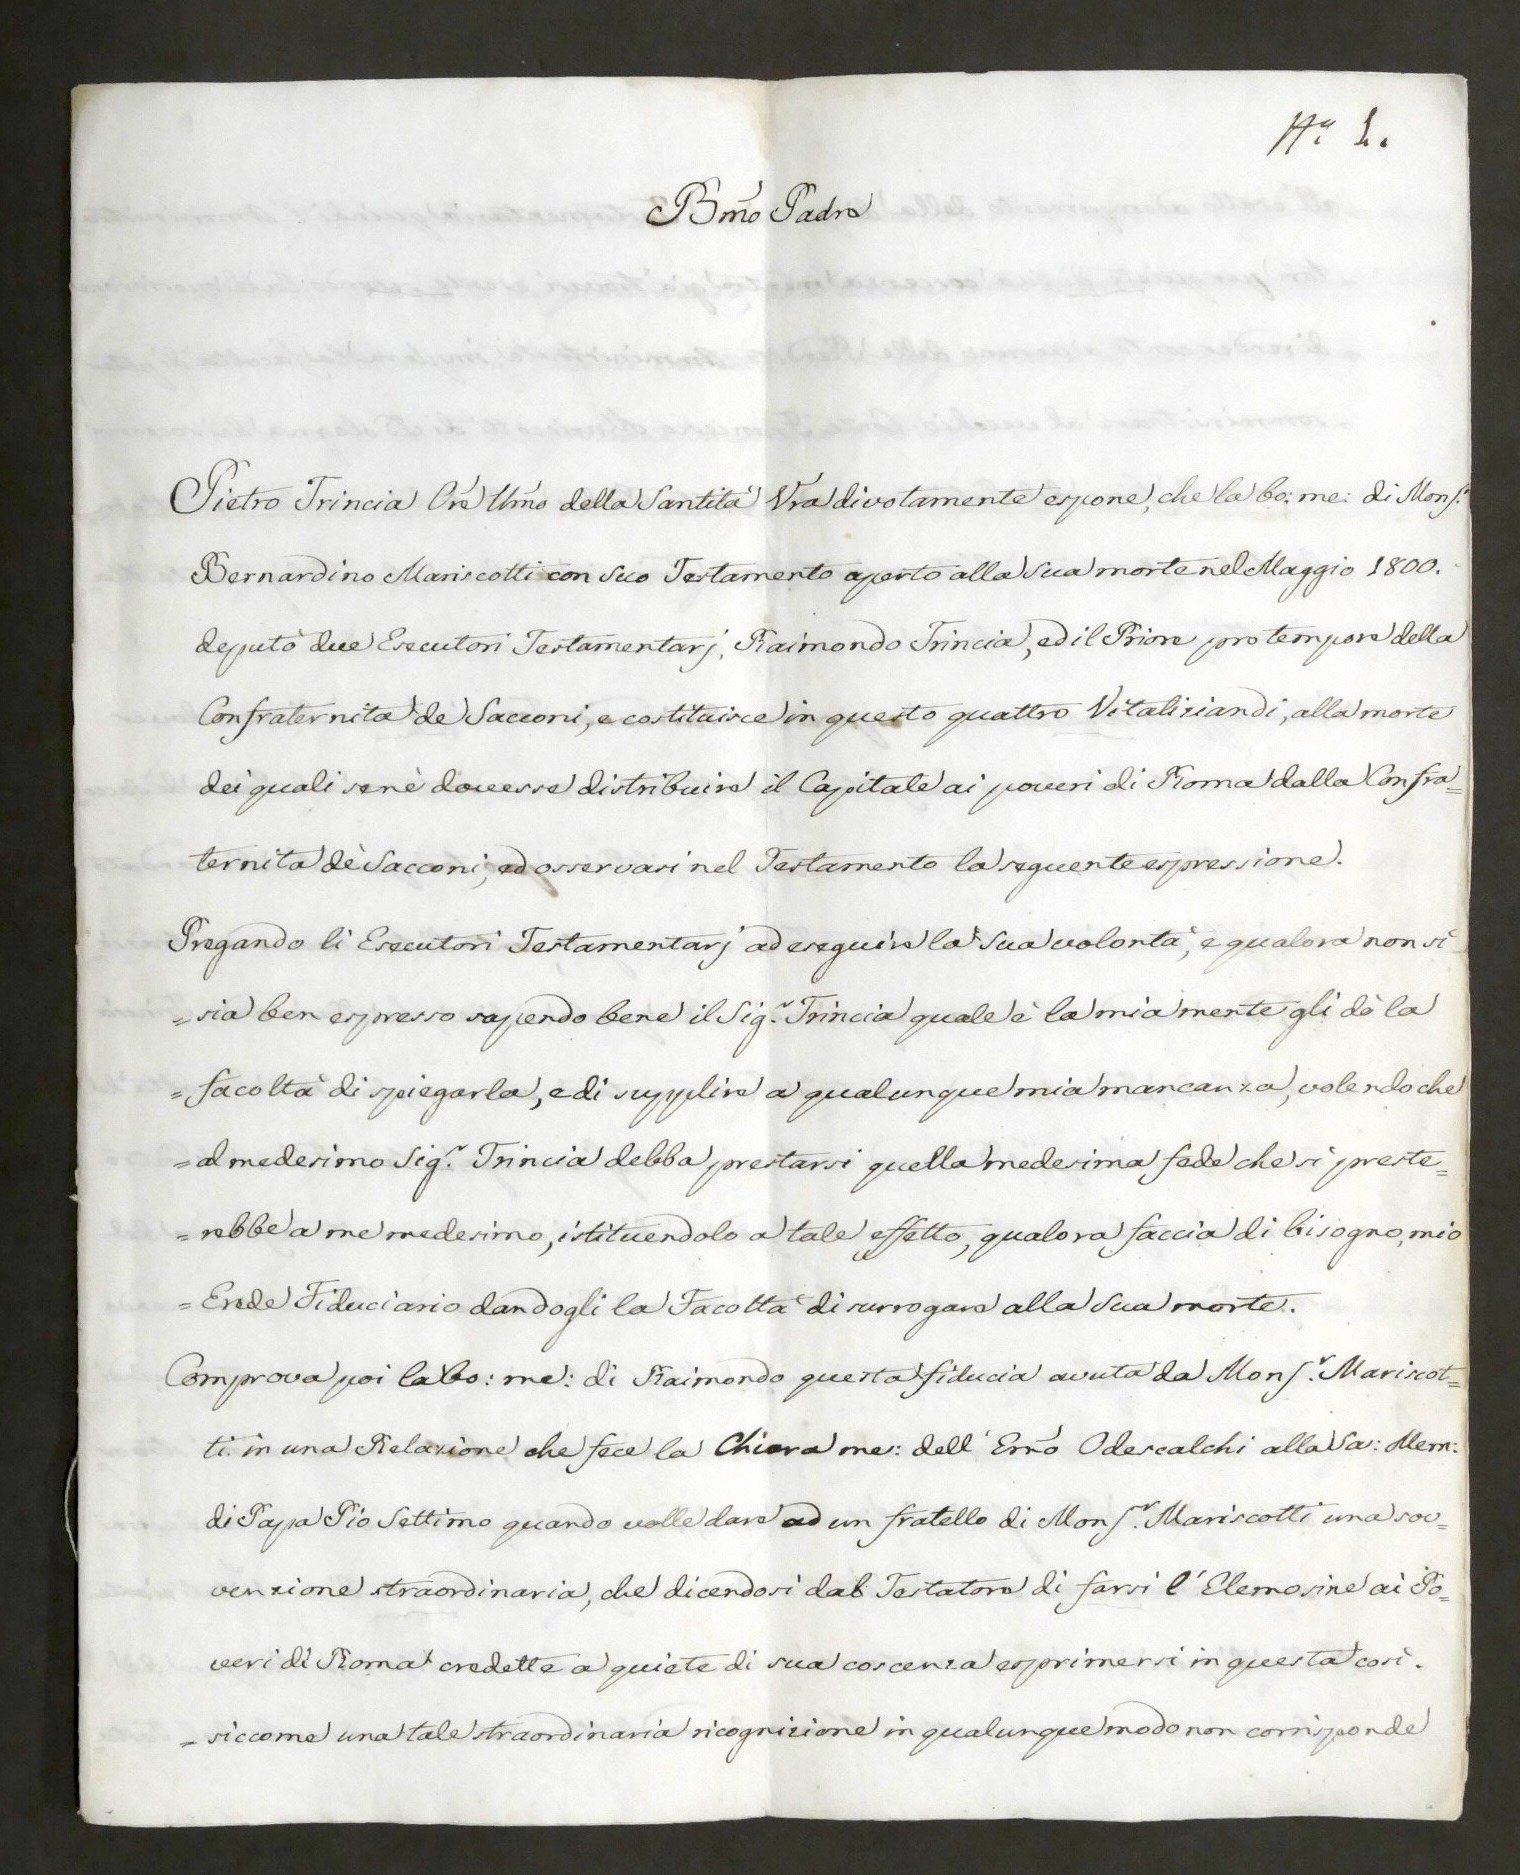 N.° 1.
Bmo Padre
Pietro Trincia Ore Umo della Santità Vra divotamente espone, che la bo: me: di Monsr.
Bernardino Mariscotti con suo Testamento aperto alla sua morte nel Maggio 1800.
deputò due Esecutori Testamentarj, Raimondo Trincia, ed il Priore pro tempore della
Confraternita de Sacconi, e costituisce in questo quattro Vitaliziandi, alla morte
dei quali senè dovesse distribuire il Capitale ai poveri di Roma dalla Confra=
ternita dè Sacconi, ed osservasi nel Testamento la seguente espressione.
Pregando li Esecutori Testamentarj ad eseguire la sua volontà, e qualora non si
= sia ben espresso sapendo bene il Sigr. Trincia quale è la mia mente gli dò la
= facoltà di spiegarla, e di supplire a qualunque mia mancanza, volendo che
= al medesimo Sigr. Trincia debba prestarsi quella medesima fede che si preste=
= rebbe a me medesimo, istituendolo a tale effetto, qualora faccia di bisogno, mio
= Erede Fiduciario dandogli la Facoltà di surrogare alla sua morte.
Comprova poi la bo: me: di Raimondo questa fiducia avuta da Monsr. Mariscot=
ti in una Relazione che fece la Chiara me: dell' Emo Odescalchi alla Sa: Mem:
di Papa Pio Settimo quando volle dare ad un fratello di Monsr. Mariscotti una sov=
venzione straordinaria, che dicendosi dal Testatore di farsi l' Elemosine ai Po=
veri di Roma credette a quiete di sua coscenza esprimersi in questa così.
= siccome una tale straordinaria ricognizione in qualunque modo non corrisponde